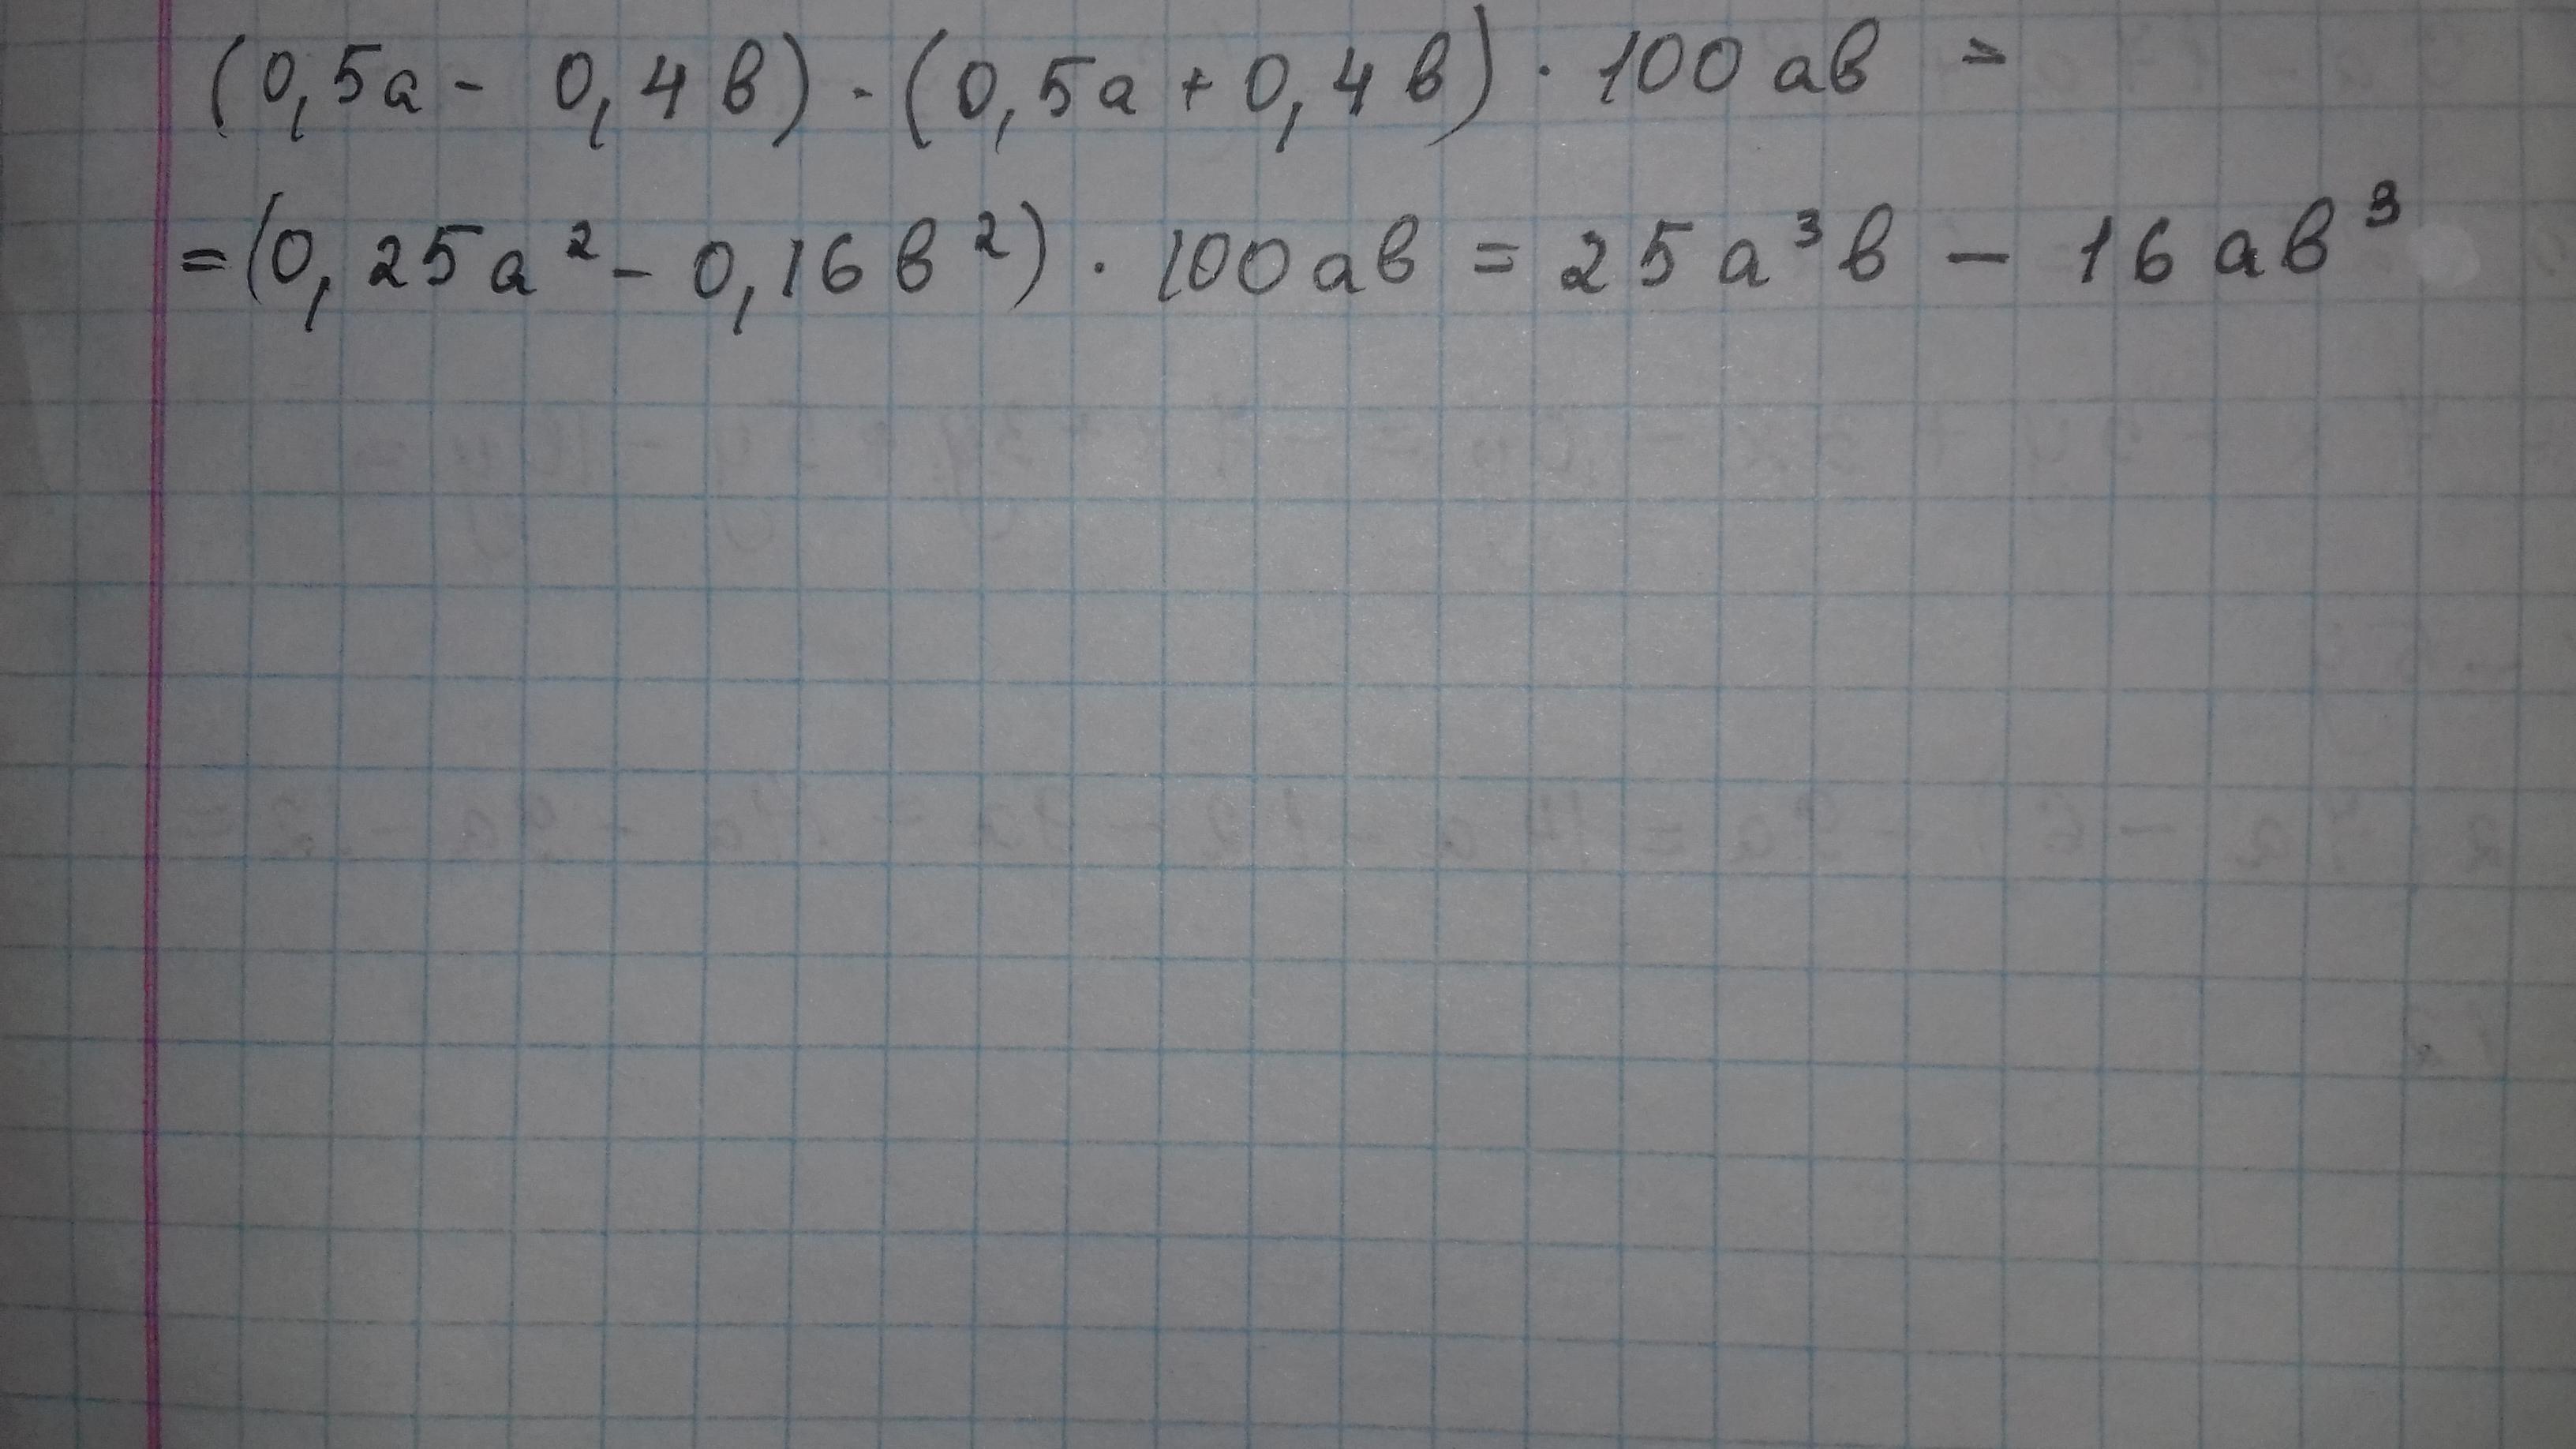 (0,5а - 0,4в) · (0,5а + 0,4в) · 100ав =
= (0,25а² - 0,16в²) · 100ав = 25а³в - 16ав³